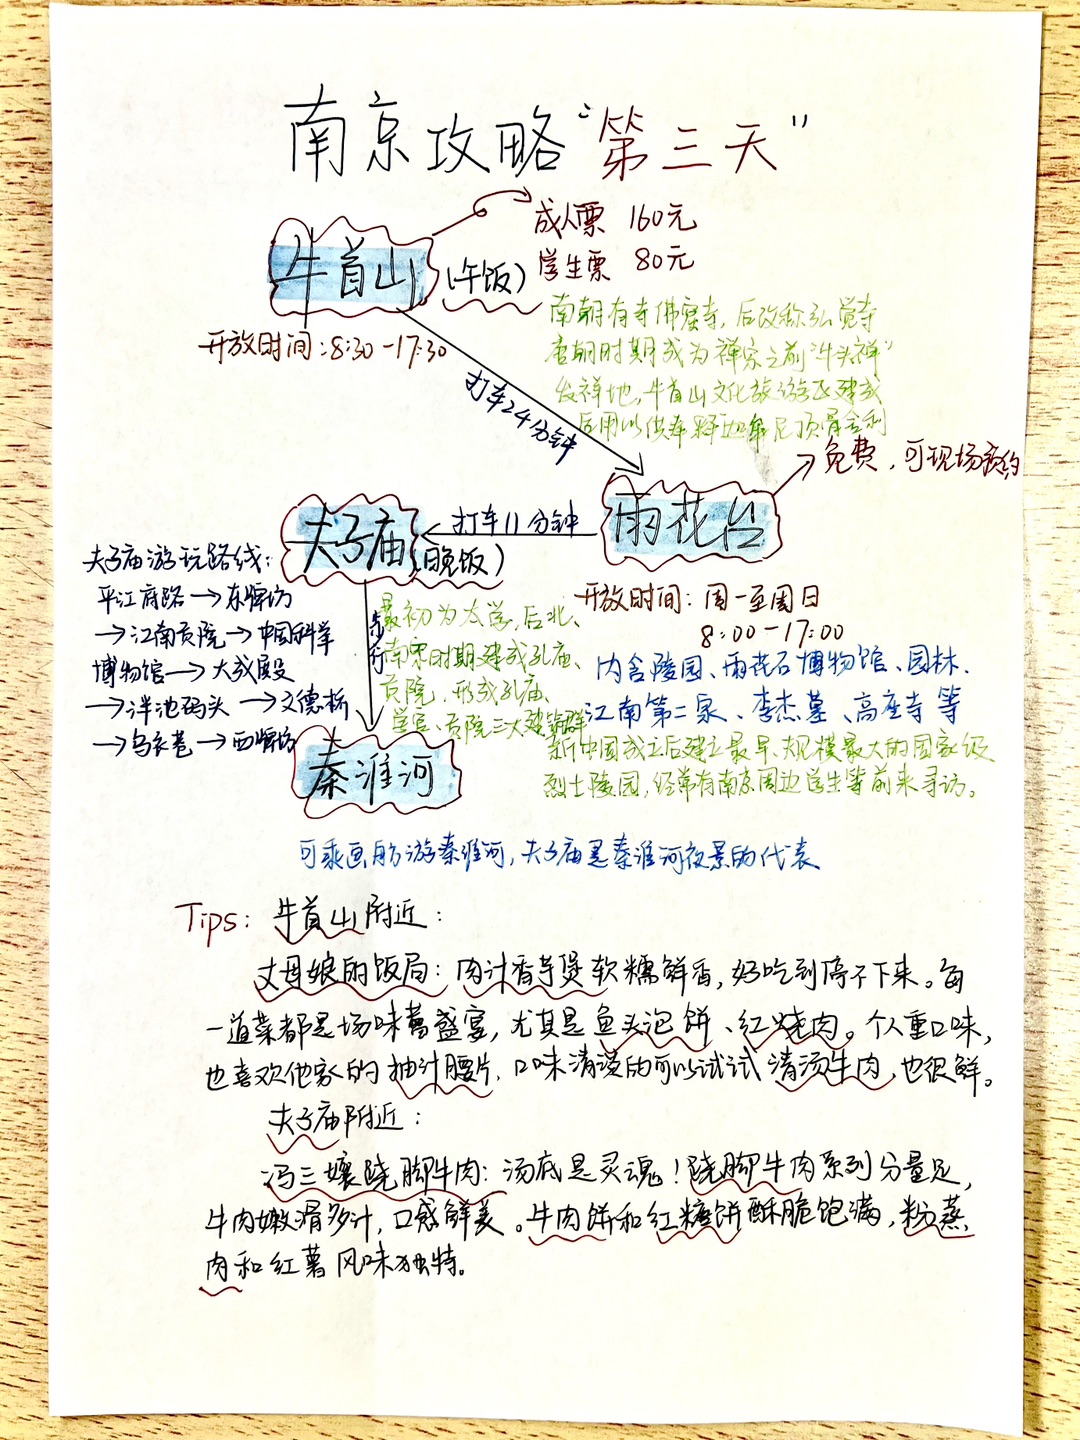 南京攻略“第三天”
牛首山
(午饭)
成人票 160元
学生票 80元
开放时间:8:30-17:30
南朝有寺佛窟寺,后改称弘觉寺
唐朝时期成为禅宗之前“牛头禅”
发祥地,牛首山文化旅游区建成
后用以供奉释迦牟尼顶骨舍利
打车24分钟
雨花台
免费,可现场预约
打车11分钟
夫子庙
(晚饭)
开放时间:周一至周日
8:00-17:00
内含陵园、雨花石博物馆、园林、
江南第二泉、李杰墓、高座寺等
新中国成立后建立最早、规模最大的国家级
烈士陵园,经常有南京周边学生等前来寻访。
夫子庙游玩路线:
平江府路→东牌坊
→江南贡院→中国科举
博物馆→大成殿
→泮池码头→文德桥
→乌衣巷→西牌坊
步行
最初为太学,后北、
南宋时期建成孔庙、
贡院,形成孔庙、
学宫、贡院三大建筑群
秦淮河
可乘画舫游秦淮河,夫子庙是秦淮河夜景的代表
Tips:牛首山附近:
丈母娘的饭局:肉汁香芋煲软糯鲜香,好吃到停不下来。每
一道菜都是场味蕾盛宴,尤其是鱼头泡饼、红烧肉。个人重口味,
也喜欢他家的抽汁腰片,口味清淡的可以试试清汤牛肉,也很鲜。
夫子庙附近:
冯三孃跷脚牛肉:汤底是灵魂!跷脚牛肉系列分量足,
牛肉嫩滑多汁,口感鲜美。牛肉饼和红糖饼酥脆饱满,粉蒸
肉和红薯风味独特。